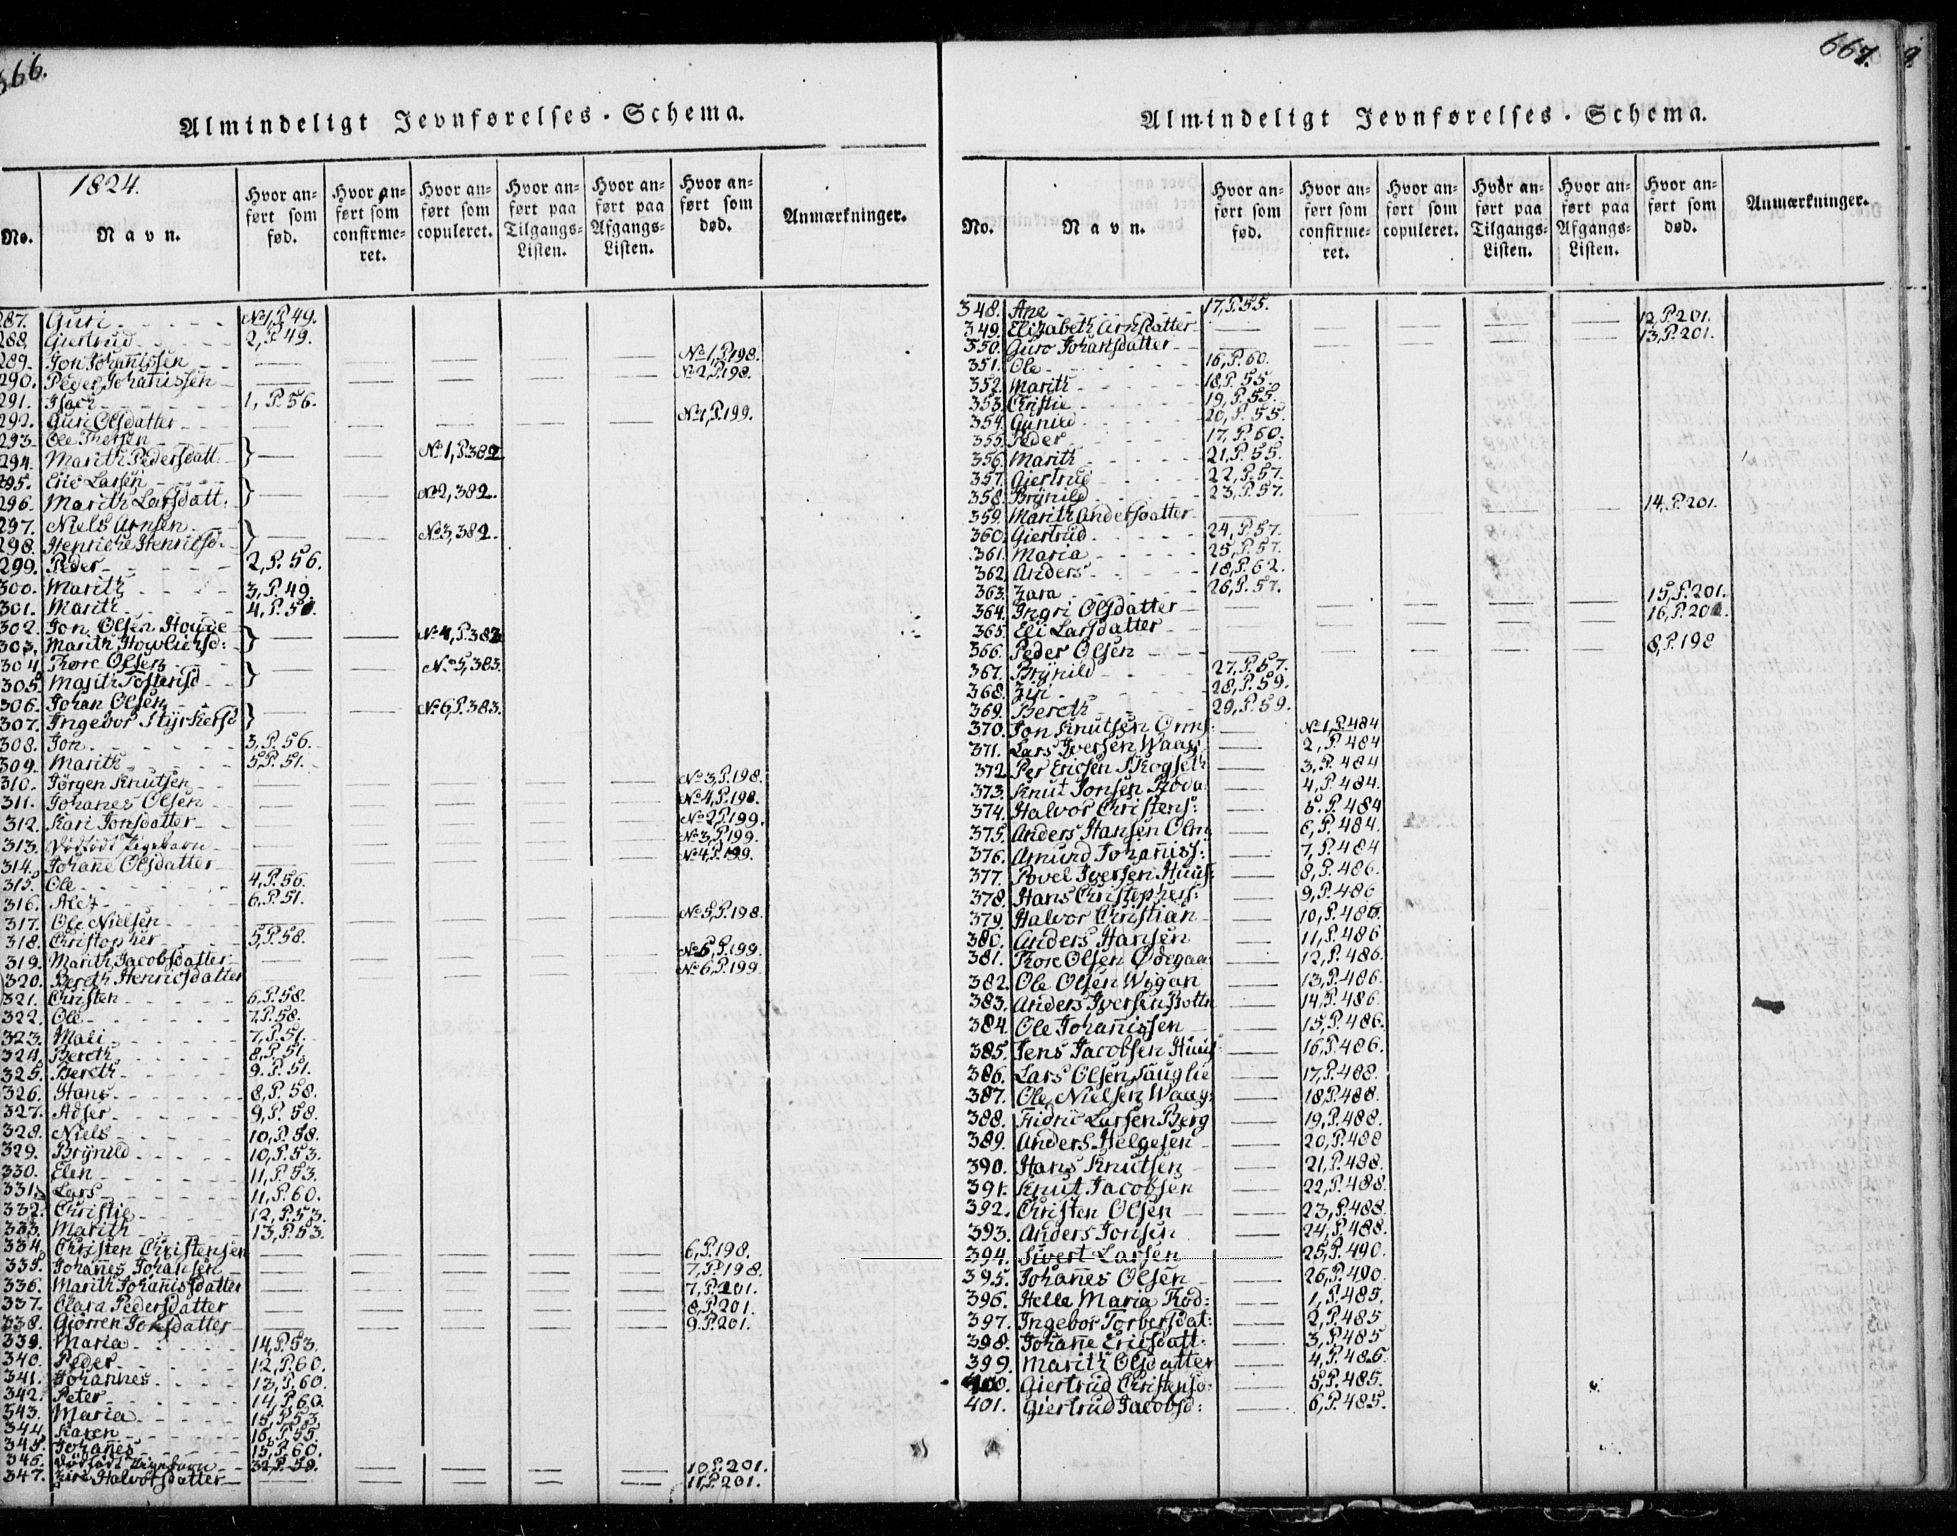 666.
Almindeligt Jevnførelses-Schema.
1824.
No.
Navn.
Hvor anført som fød.
Hvor anført som confirmeret.
Hvor anført som copuleret.
Hvor anført paa Tilgangs-Listen.
Hvor anført paa Afgangs-Listen.
Hvor anført som død.
Anmærkninger.
287. Guri No 1, P. 49.
288. Giertrud 2, P. 49.
289. Jon Johañissen No 1, P. 198.
290. Peder Johañissen No 2, P. 198.
291. Isach 1, P. 56.
292. Guri Olsdatter No 1, P. 199.
293. Ole Thersen
294. Marith Pedersdatt. No 1, P. 382
295. Eric Larsen
296. Marith Larsdatt: No 2, 382.
297. Niels Arnsen
298. Henriche Henricsd. No 3, 382.
299. Peder 2, P. 56.
300. Marith 3, P. 49.
301. Marith 4, P. 50.
302. Jon Olsen Houge
303. Marith No 4, P. 382
304. Thore Olsen
305. Marith No 5, 383.
306. Johan Olsen
307. Ingebor Styrkersd No 6, P. 383.
308. Jon 3, P. 56.
309. Marith 5, P. 51.
310. Jørgen Knutsen No 3, P. 198.
311. Johanes Olsen No 4, P. 198.
312. Kari Jonsdatter No 2 P. 199.
313. Dødfødt Pigebarn No 3, P. 199.
314. Johañe Olsdatter No 4, P. 199.
315. Ole 4, P. 56.
316. Alex 6, P. 51.
317. Ole Nielsen No 5, P. 198.
318. Christopher 5, P. 58.
319. Marith Jacobsdatter No 5, P. 199.
320. Bereth Henricsdatter No 6, P. 199.
321. Christen 6, P. 58.
322. Ole 7, P. 58.
323. Mali 7, P. 51.
324. Bereth 8, P. 51.
325. Bereth 9. P. 51.
326. Hans 8, P. 58.
327. Adser 9, P. 58.
328. Niels 10, P. 58.
329. Brÿnild 10, P. 53.
330. Elen 11, P. 53.
331. Lars 11, P. 60.
332. Christie 12, P. 53.
333. Marith 13, P. 53.
334. Christen Christensen 6, P. 198.
335. Johañes Johansen 7, P. 198.
336. Marith Johañisdatter 7, P. 201.
337. Clara Pedersdatter 8, P. 201.
338. Giørren Jonsdatter 9. P. 201.
339. Maria 14, P. 53.
340. Peder 12, P. 60.
341. Johannes 13, P. 60.
342. Peter 14, P. 60.
343. Maria 15, P. 53
344. Karen 16, P. 55.
345. Johañes 15, P. 60.
346. Dødfødt Pigebarn 32, P. 59. 10 P. 201.
347. Ziri Halvorsdatter 11, P. 201.
667.
Almindeligt Jevnførelses-Schema.
No.
Navn.
Hvor anført som fød.
Hvor anført som confirmeret.
Hvor anført som copuleret.
Hvor anført paa Tilgangs-Listen.
Hvor anført paa Afgangs-Listen.
Hvor anført som død.
Anmærkninger.
348. Ane 17, P. 55.
349. Elizabeth Arnsdatter 12, P. 201.
350. Guro Johansdatter 13, P. 201.
351. Ole 16, P. 60.
352. Marith 18, P. 55.
353. Christie 19, P. 55.
354. Gunild 20, P. 55.
355. Peder 17, P. 60.
356. Marith 21, P. 55.
357. Giertrud 22, P. 57.
358. Brÿnild 23, P. 57.
359. Marith Andersdatter 14, P. 201.
360. Giertrud 24, P. 57.
361. Maria 25, P. 57.
362. Anders 18, P. 62.
363. Zara 26, P. 57.
364. Ingri Olsdatter 15, P. 201.
365. Eli Larsdatter 16, P. 201.
366. Peder Olsen 8, P. 198
367. Brÿnild 27, P. 57.
368. Ziri 28, P. 59.
369. Bereth 29, P. 59.
370. Jon Knutsen No 1, P. 484
371. Lars Iversen Waag: 2, P. 484
372. Per Ericsen Skogseth 3, P. 484
373. Knut Jonsen 4, P. 484.
374. Halvor Christens: 5, P. 484
375. Anders Hansen 6, P. 484.
376. Amund Johañiss: 7, P. 484
377. Povel Iversen Huus: 8, P. 486.
378. Hans Christophers: 9, P. 486
379. Halvor Christian 10, P. 486.
380. Anders Hansen 11, P. 486
381. Thore Olsen Ødegaa 12, P. 486.
382. Ole Olsen Wigan 13, P. 486.
383. Anders Iversen Bottn 14, P. 486.
384. Ole Johañissen 15, P. 486.
385. Jens Jacobsen Huus: 16, P. 486.
386. Lars Olsen Sauglie 17, P. 488.
387. Ole Nielsen Waag: 18, P. 488.
388. Fridric Larsen Berg 19, P. 488.
389. Anders Helgesen 20, P. 488
390. Hans Knutsen 21, P. 488.
391. Knut Jacobsen 22, P. 488
392. Christen Olsen 23, P. 488.
393. Anders Jonsen 24, P. 488.
394. Sivert Larsen 25, P. 490.
395. Johañes Olsen 26, P. 490.
396. Helle Maria 1, P. 485.
397. Ingebor Torbersdat: 2, P. 485
398. Johañe Ericsdatt: 3, P. 485
399. Marith Olsdatter 4, P. 485.
400. Giertrud Christensd: 5, P. 485.
401. Giertrud Jacobsd: 6, P. 485.